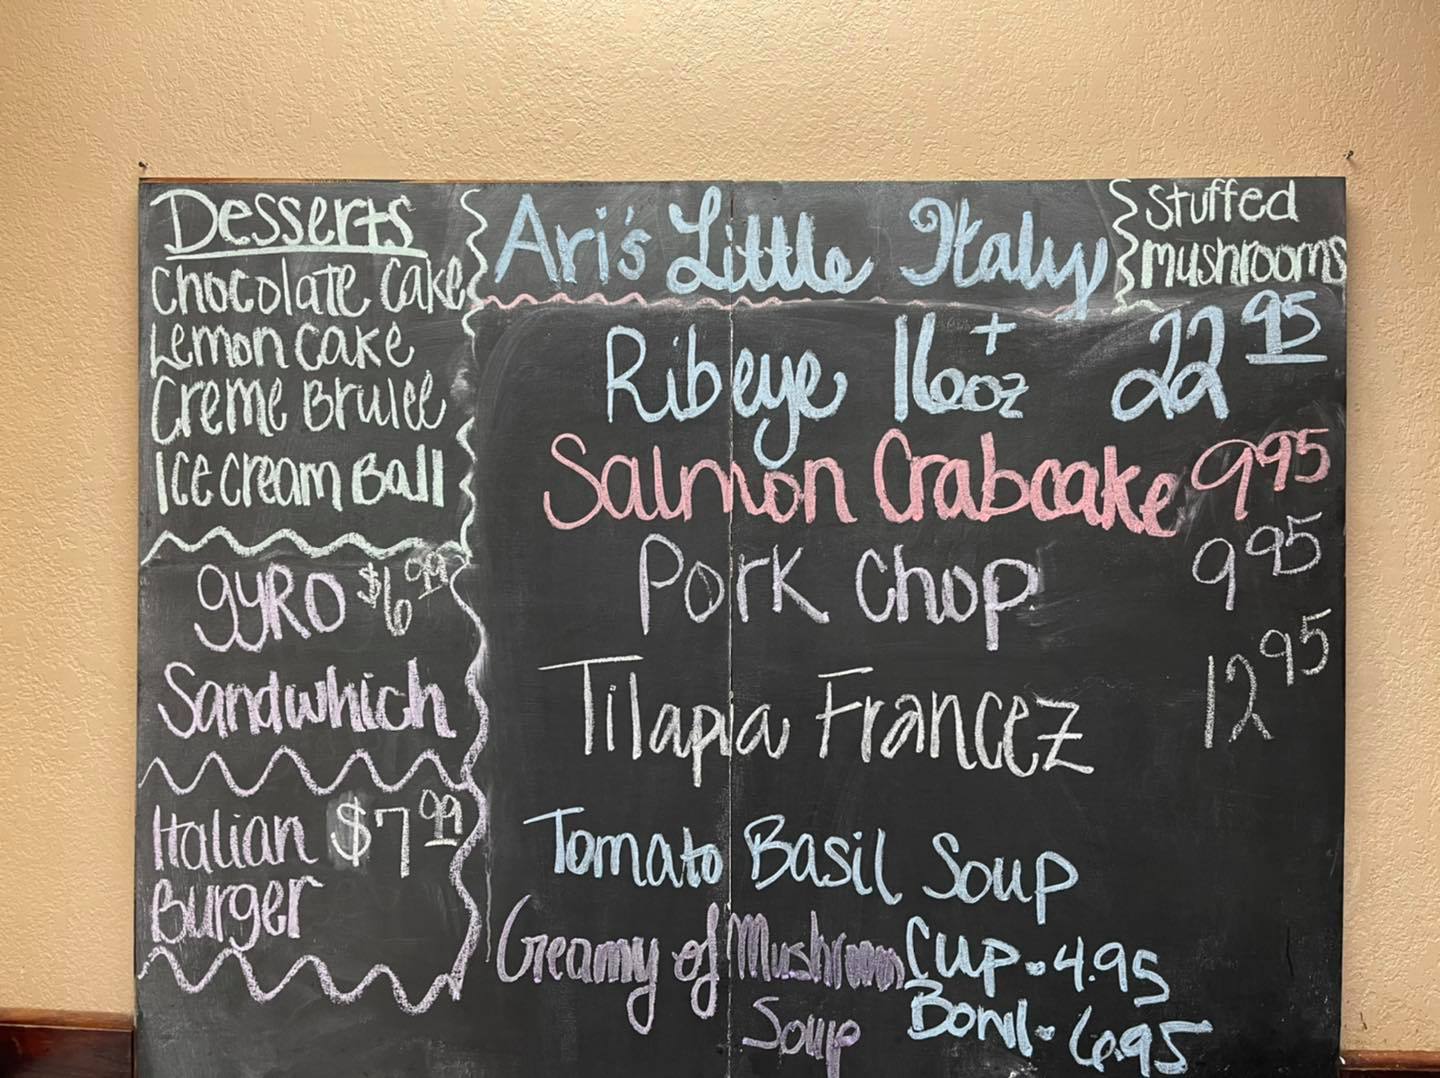 Desserts
Chocolate Cake
Lemon Cake
Creme Brulee
Ice Cream Ball
gyro $6.99
Sandwhich
Italian $7.99
Burger
Ari's Little Italy
Stuffed
mushrooms
Ribeye 16+oz 22.95
Salmon Crabcake 9 95
Pork Chop 9 95
Tilapia Francez 12 95
Tomato Basil Soup
Creamy of Mushroom Cup - 4.95
Soup Bowl - 6.95